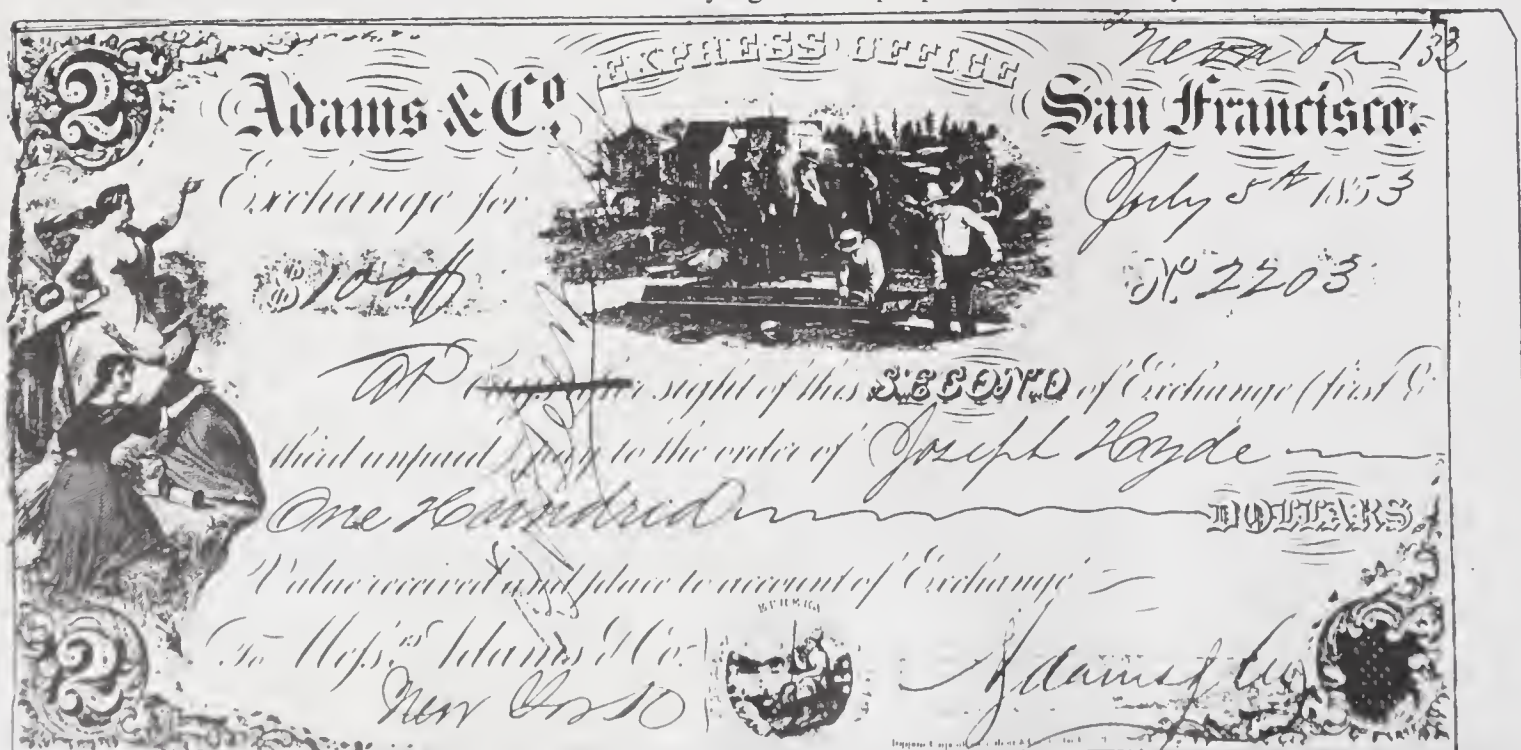 EXPRESS OFFICE
Nevada 133
2
Adams & Co.
San Francisco.
Exchange for
July 8th 1853
$100
No. 2203
At sight of this SECOND of Exchange (first &
third unpaid) pay to the order of Joseph Hyde
One Hundrid DOLLARS.
Value received and place to account of Exchange
To Mess.rs Adams & Co.
New York
Adams & Co
2